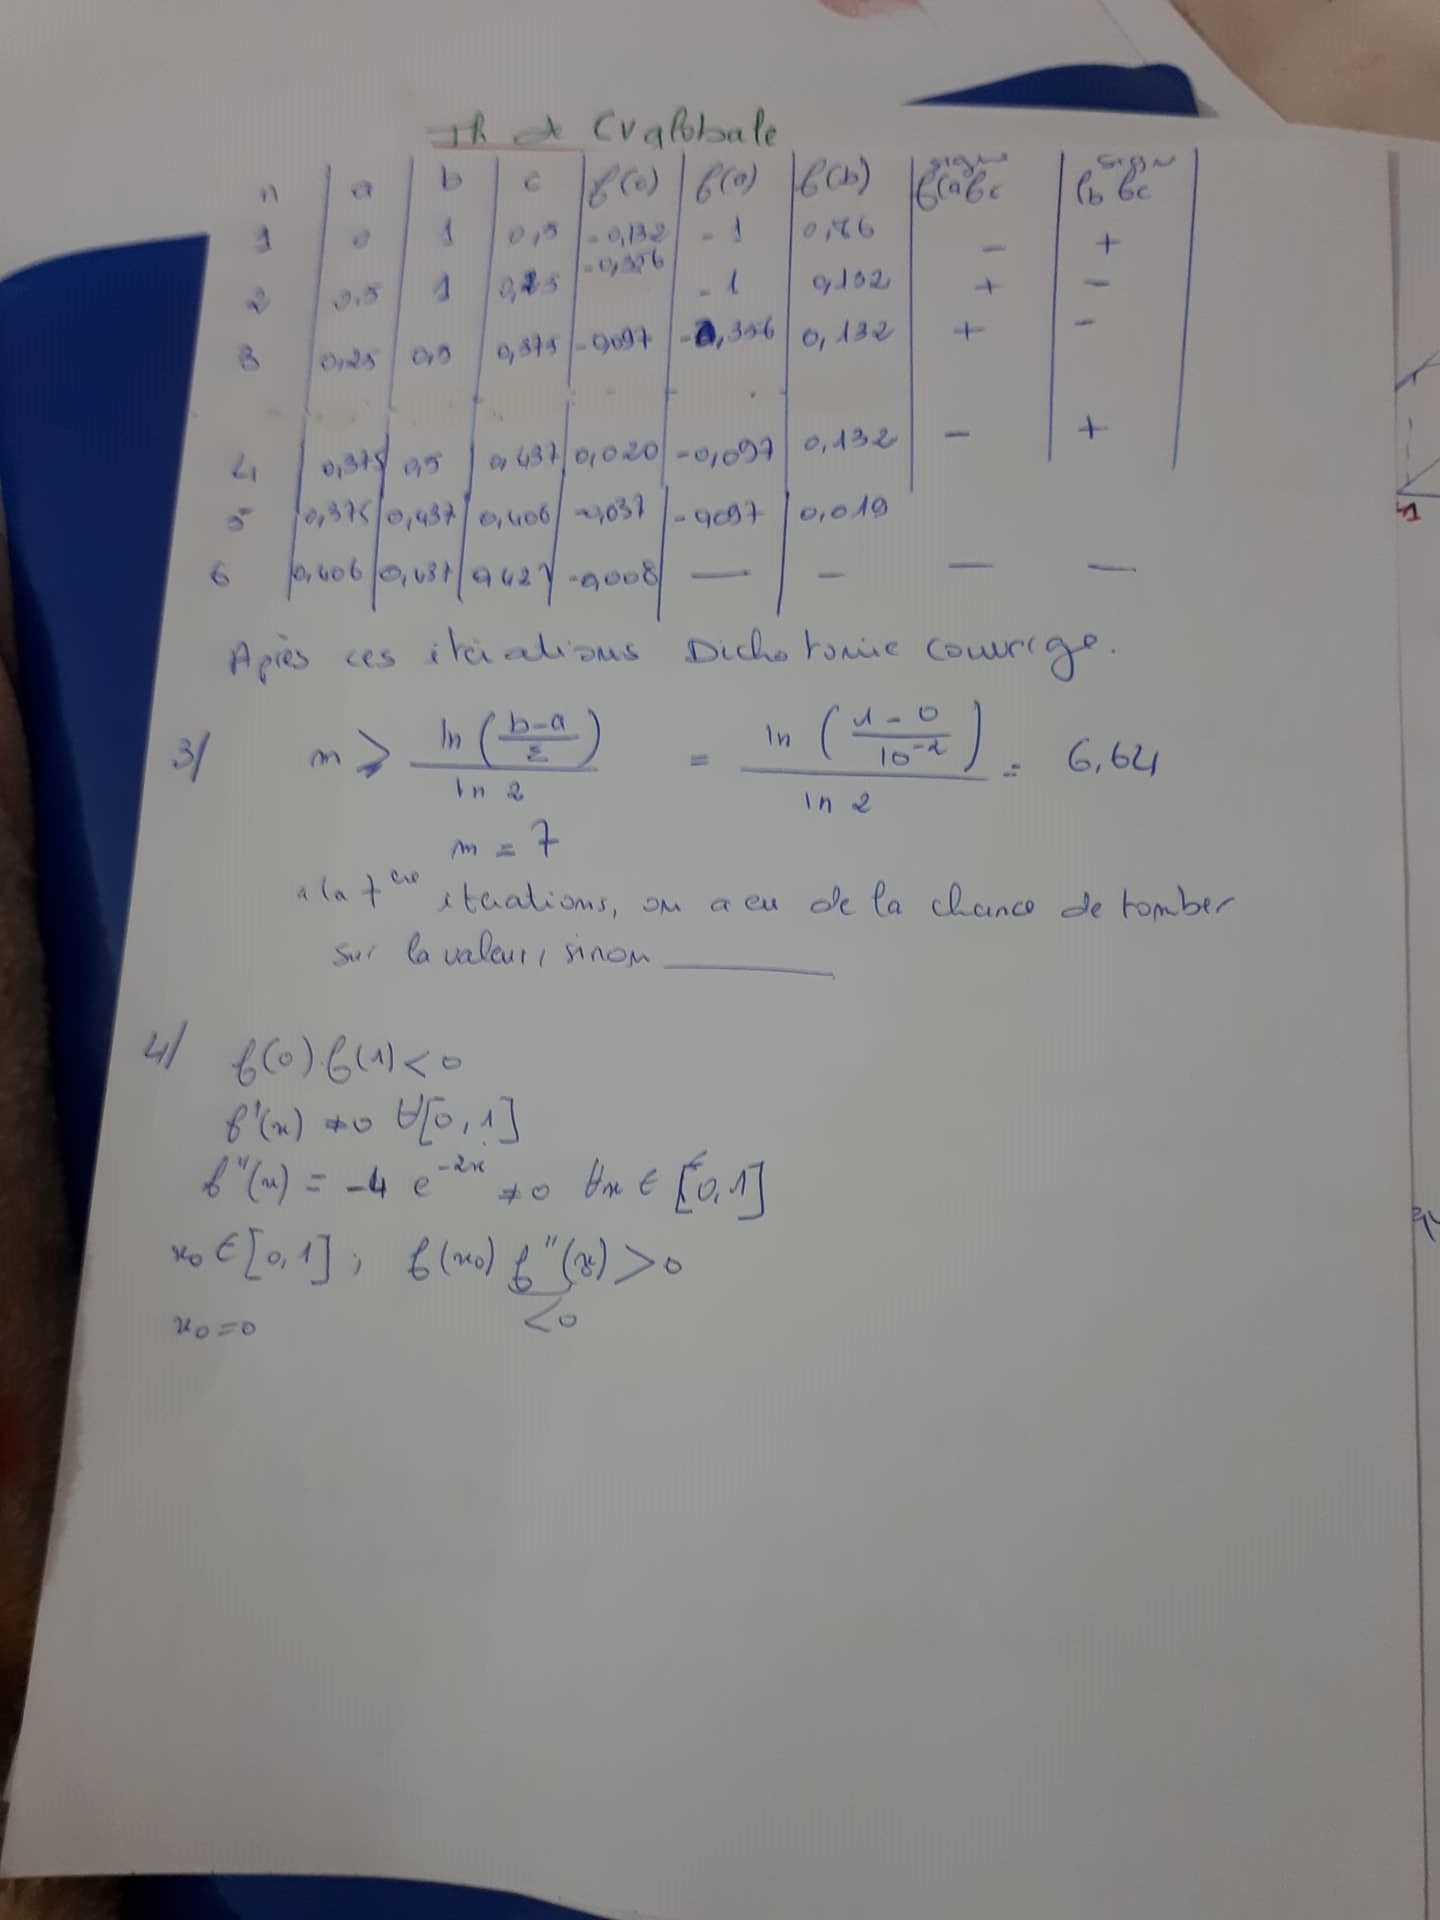 Th de CV globale
n | a | b | c | f(c) | f(a) | f(b) | signe f(a)fc | signe fb fc
1 | 0 | 1 | 0,5 | -0,132 | -1 | 0,86 | - | +
2 | 0,5 | 1 | 0,25 | -0,356 | -1 | 0,132 | + | -
3 | 0,25 | 0,5 | 0,375 | -0,097 | -0,356 | 0,132 | + | -
4 | 0,375 | 0,5 | 0,437 | 0,020 | -0,097 | 0,132 | - | +
5 | 0,375 | 0,437 | 0,406 | -0,037 | -0,097 | 0,019
6 | 0,406 | 0,437 | 0,421 | -0,008 | — | — | — | —
Après ces itérations Dichotomie converge.
3/ n ≥ ln((b-a)/ε) / ln 2 = ln((1-0)/10^-2) / ln 2 = 6,64
n = 7
à la 7ème itérations, on a eu de la chance de tomber
sur la valeur, sinon ______
4/ f(0).f(1) < 0
f'(x) ≠ 0 ∀[0,1]
f''(x) = -4 e^-2x ≠ 0 ∀x ∈ [0,1]
x0 ∈ [0,1] ; f(x0) f''(x) > 0
x0 = 0 < 0